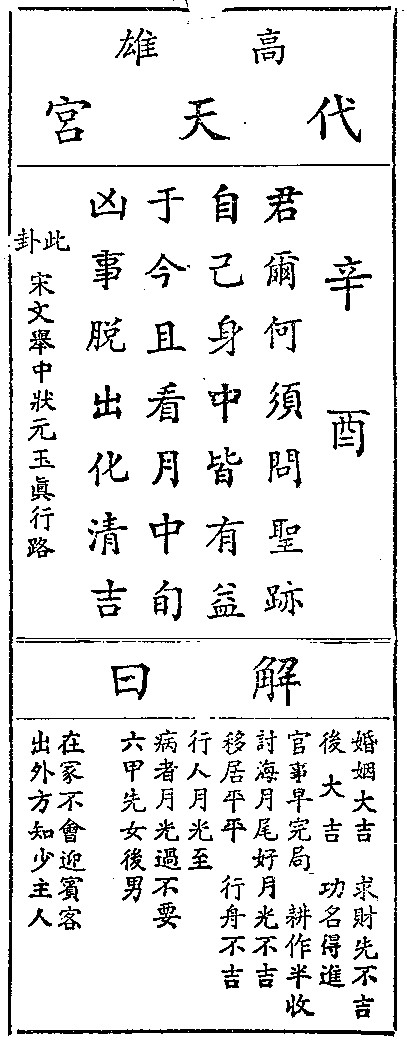 高雄
代天宮
辛酉
君爾何須問聖跡
自己身中皆有益
于今且看月中旬
凶事脫出化清吉
此卦
宋文舉中狀元玉真行路
解曰
婚姻大吉 求財先不吉
後大吉 功名得進
官事早完局 耕作半收
討海月尾好月光不吉
移居平平 行舟不吉
行人月光至
病者月光過不要
六甲先女後男
在家不會迎賓客
出外方知少主人